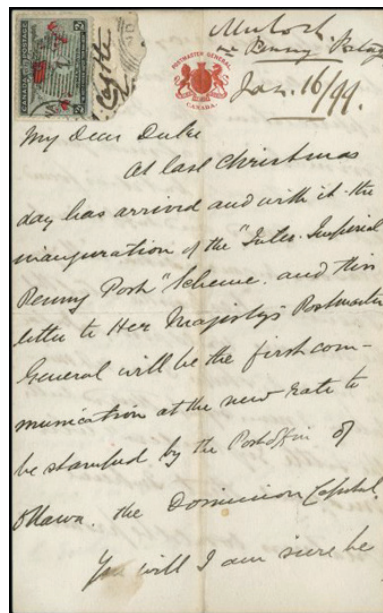 CANADA POSTAGE
POSTMASTER GENERAL.
CANADA.
Mulock
re Penny Postage
Jan. 16/99.
My dear Duke
At last Christmas
day has arrived and with it the
inauguration of the "Inter-Imperial
Penny Post" Scheme. and this
letter to Her Majesty's Postmaster
General will be the first com-
munication at the new rate to
be stamped by the Post office of
Ottawa. the Dominion Capital.
You will I am sure be